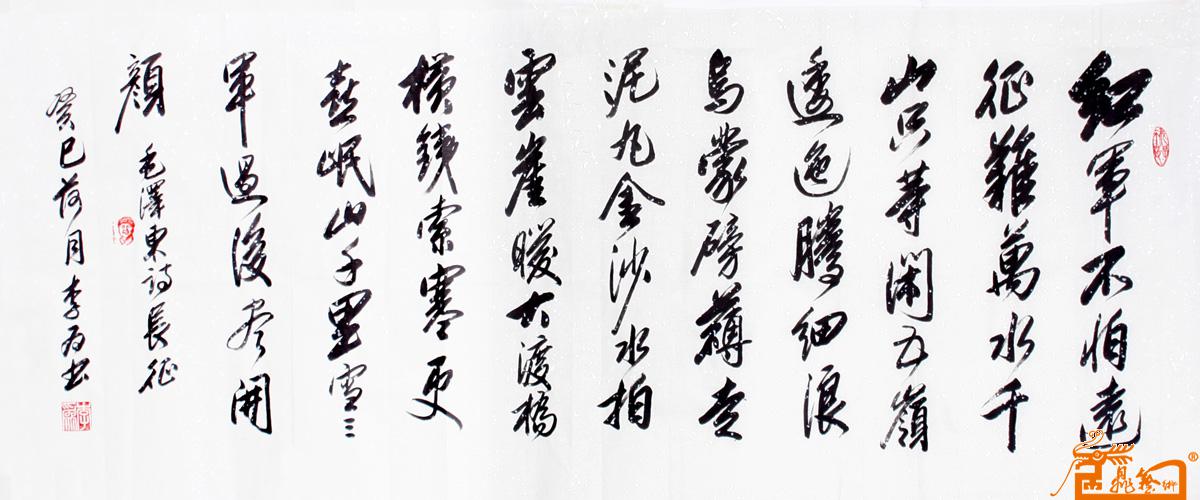 紅軍不怕遠
征難萬水千
山只等閑五嶺
逶迤騰細浪
烏蒙磅礴走
泥丸金沙水拍
雲崖暖大渡橋
橫鐵索寒更
喜岷山千里雪三
軍過後尽開
顏 毛澤東詩長征
癸巳荷月李为书